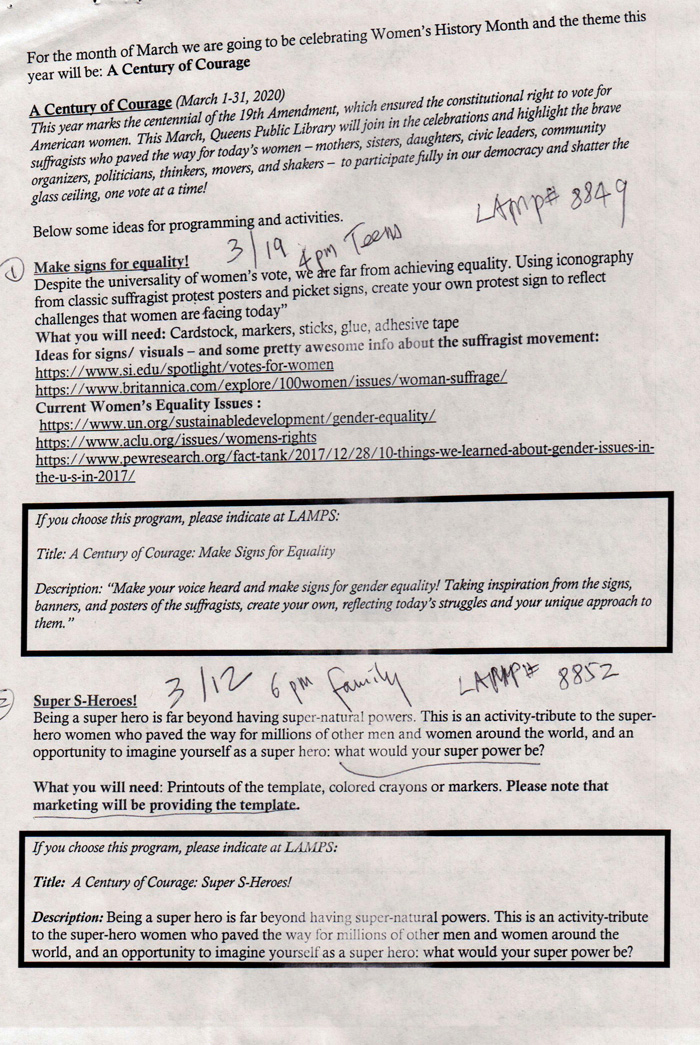 For the month of March we are going to be celebrating Women's History Month and the theme this
year will be: A Century of Courage
A Century of Courage (March 1-31, 2020)
This year marks the centennial of the 19th Amendment, which ensured the constitutional right to vote for
American women. This March, Queens Public Library will join in the celebrations and highlight the brave
suffragists who paved the way for today's women – mothers, sisters, daughters, civic leaders, community
organizers, politicians, thinkers, movers, and shakers – to participate fully in our democracy and shatter the
glass ceiling, one vote at a time!
Below some ideas for programming and activities.
LAMP# 8849
3/19 4pm Teens
1 Make signs for equality!
Despite the universality of women's vote, we are far from achieving equality. Using iconography
from classic suffragist protest posters and picket signs, create your own protest sign to reflect
challenges that women are facing today”
What you will need: Cardstock, markers, sticks, glue, adhesive tape
Ideas for signs/ visuals – and some pretty awesome info about the suffragist movement:
https://www.si.edu/spotlight/votes-for-women
https://www.britannica.com/explore/100women/issues/woman-suffrage/
Current Women's Equality Issues :
https://www.un.org/sustainabledevelopment/gender-equality/
https://www.aclu.org/issues/womens-rights
https://www.pewresearch.org/fact-tank/2017/12/28/10-things-we-learned-about-gender-issues-in-
the-u-s-in-2017/
If you choose this program, please indicate at LAMPS:
Title: A Century of Courage: Make Signs for Equality
Description: “Make your voice heard and make signs for gender equality! Taking inspiration from the signs,
banners, and posters of the suffragists, create your own, reflecting today's struggles and your unique approach to
them.”
3/12 6pm family LAMP# 8852
2 Super S-Heroes!
Being a super hero is far beyond having super-natural powers. This is an activity-tribute to the super-
hero women who paved the way for millions of other men and women around the world, and an
opportunity to imagine yourself as a super hero: what would your super power be?
What you will need: Printouts of the template, colored crayons or markers. Please note that
marketing will be providing the template.
If you choose this program, please indicate at LAMPS:
Title: A Century of Courage: Super S-Heroes!
Description: Being a super hero is far beyond having super-natural powers. This is an activity-tribute
to the super-hero women who paved the way for millions of other men and women around the
world, and an opportunity to imagine yourself as a super hero: what would your super power be?